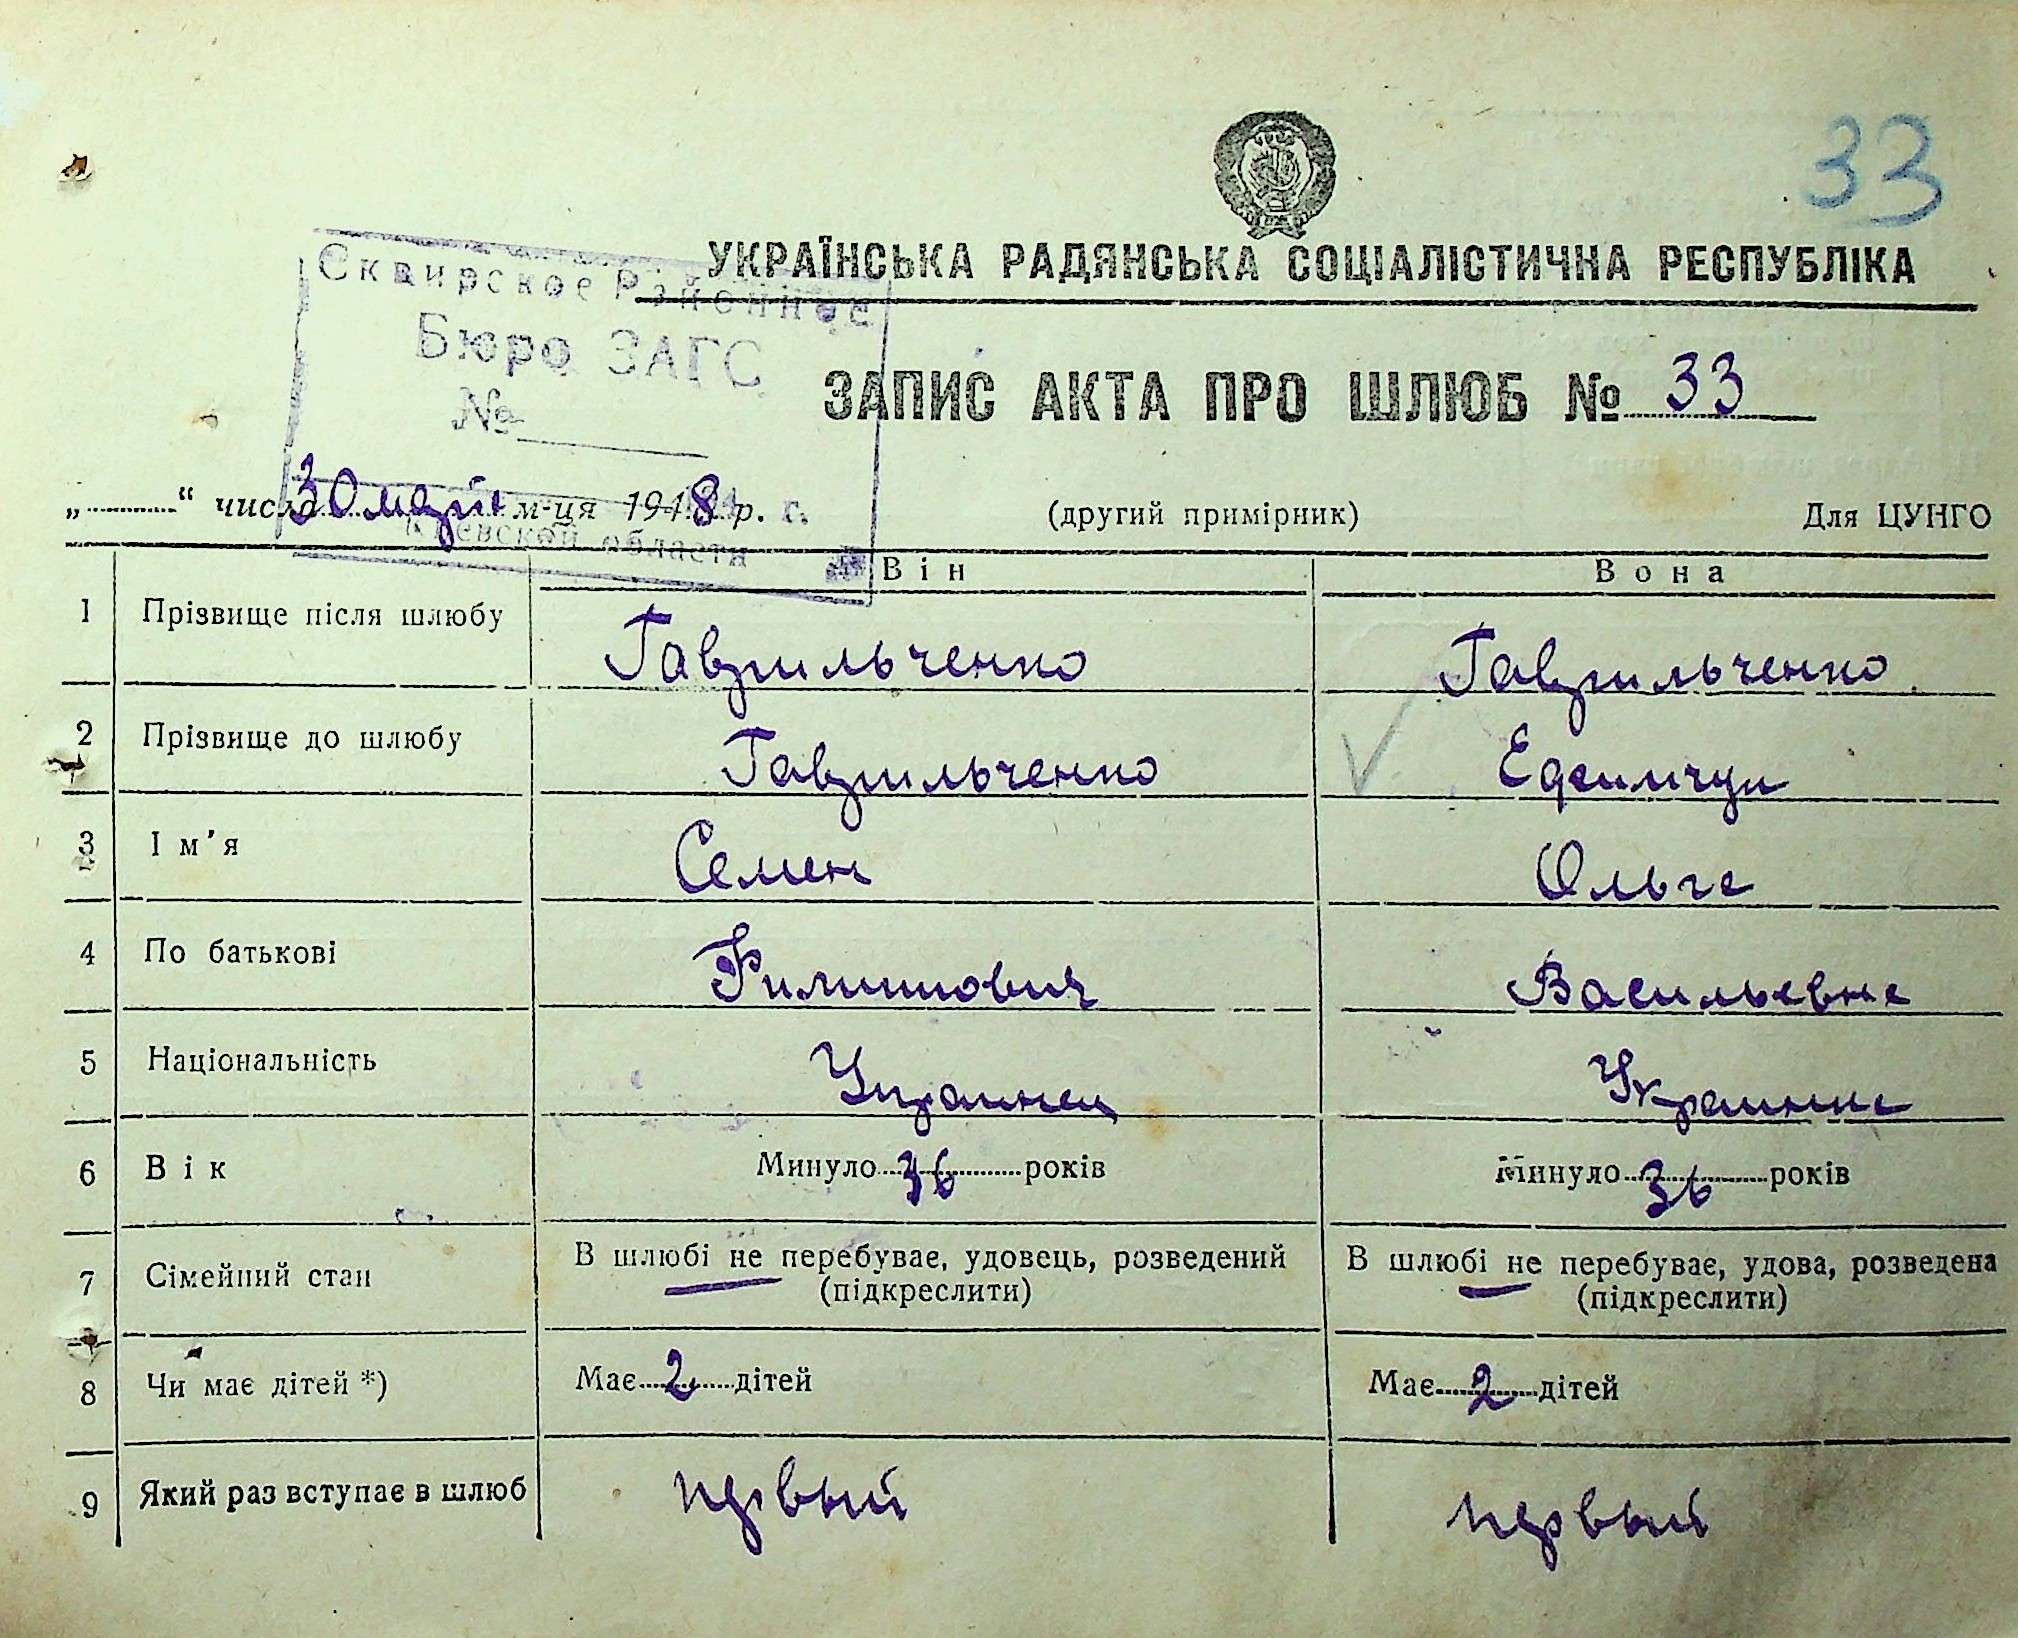 33
УКРАЇНСЬКА РАДЯНСЬКА СОЦІАЛІСТИЧНА РЕСПУБЛІКА
Сквирское Районное
Бюро ЗАГС
№
ЗАПИС АКТА ПРО ШЛЮБ № 33
„ “ числа 30 мая м-ця 1948 р. г.
(другий примірник)
Для ЦУНГО
Киевской области
Він Вона
1 Прізвище після шлюбу Гаврильченко Гаврильченко
2 Прізвище до шлюбу Гаврильченко
3 Ім’я Семен Ольга
4 По батькові Филиппович Васильевна
5 Національність Украинец Украинка
6 Вік Минуло 36 років Минуло 36 років
7 Сімейний стан В шлюбі не перебуває, удовець, розведений (підкреслити) В шлюбі не перебуває, удова, розведена (підкреслити)
8 Чи має дітей *) Має 2 дітей Має 2 дітей
9 Який раз вступає в шлюб первый первый